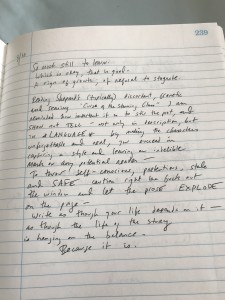 229
So much still to learn.
Which is okay, that is good.
A sign of growth, of refusal to stagnate.
Reading Shepard's (typically) discordant, frenetic
and searing "Curse of the Starving Class" I am
reminded how important it is to stir the pot, and
SHOW NOT TELL - not only in description, but
in LANGUAGE by making the characters
unforgettable and real, your
style and leaving an indelible
any potential reader -
To throw self-conscious, pretentious, stale
and SAFE caution right the fuck out
the window and let the prose EXPLODE
on the page -
Write as though your life depends on it -
as though the life of the story
is hanging on the balance.
Because it is.